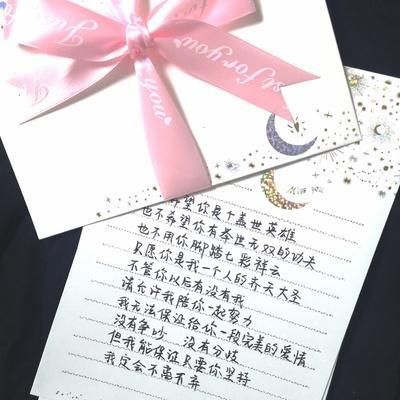 Just for you
you
希望你是个盖世英雄
也不希望你有举世无双的功夫
也不用你脚踏七彩祥云
只愿你是我一个人的齐天大圣
不管你以后有没有我
请允许我陪你一起努力
我无法保证给你一段完美的爱情
没有争吵 没有分歧
但我能保证只要你坚持
我定会不离不弃